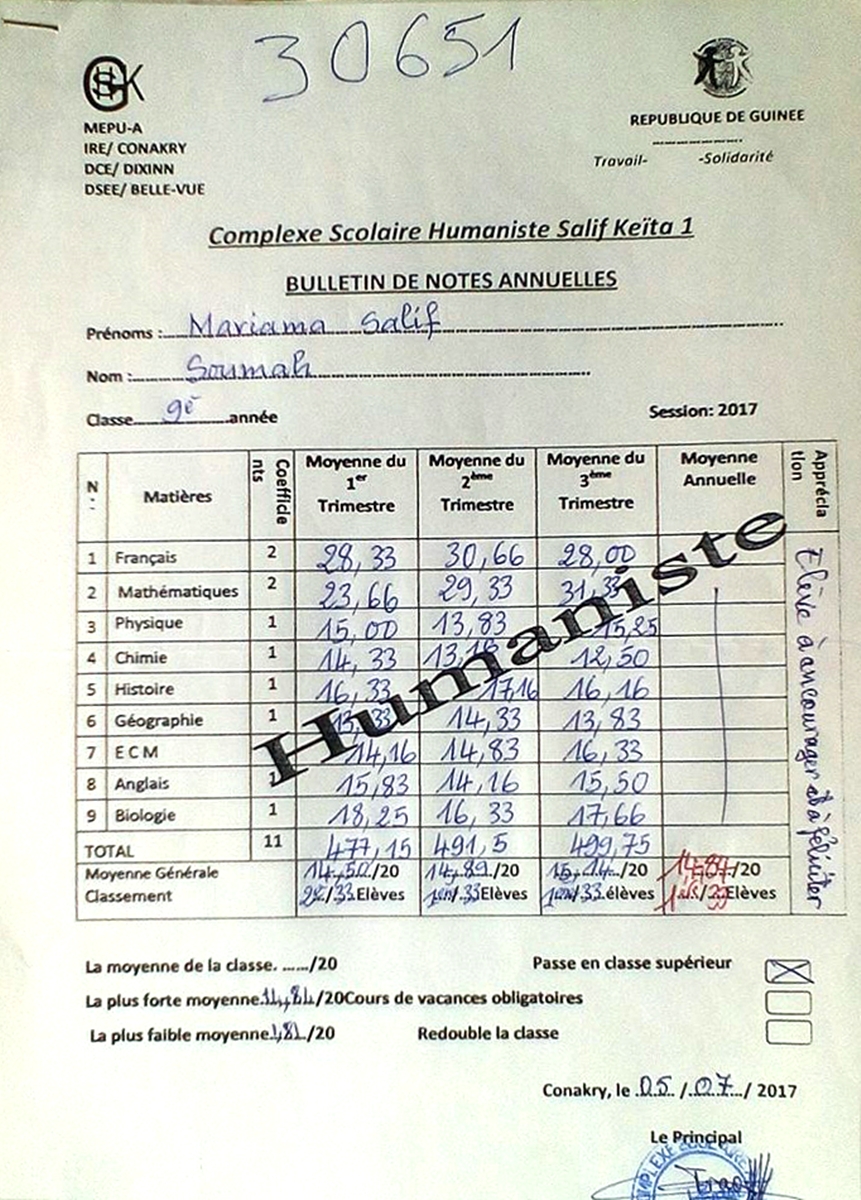 30651
GSHSK
MEPU-A
IRE/ CONAKRY
DCE/ DIXINN
DSEE/ BELLE-VUE
REPUBLIQUE DE GUINEE
Travail- -Solidarité
Complexe Scolaire Humaniste Salif Keïta 1
BULLETIN DE NOTES ANNUELLES
Prénoms : Mariama Salif
Nom : Soumah
Classe 9è année
Session: 2017
N : Matières Coefficients Moyenne du 1er Trimestre Moyenne du 2ème Trimestre Moyenne du 3ème Trimestre Moyenne Annuelle Appréciation
1 Français 2 28,33 30,66 28,00
2 Mathématiques 2 23,66 29,33 31,33
3 Physique 1 15,00 13,83 15,25
4 Chimie 1 14,33 13,16 12,50
5 Histoire 1 16,33 17,16 16,16
6 Géographie 1 13,33 14,33 13,83
7 E C M 14,16 14,83 16,33
8 Anglais 1 15,83 14,16 15,50
9 Biologie 1 18,25 16,33 17,66
TOTAL 11 477,15 491,5 499,75
Moyenne Générale 14,50/20 14,89/20 15,14/20 14,84/20
Classement 2è/33 Elèves 1ère/33 Elèves 1ère/33 élèves 1ère/33 Elèves
Elève à encourager et à féliciter
Humaniste
La moyenne de la classe. ....../20
Passe en classe supérieur
La plus forte moyenne 14,84/20 Cours de vacances obligatoires
La plus faible moyenne /20
Redouble la classe
Conakry, le 05/07/ 2017
Le Principal